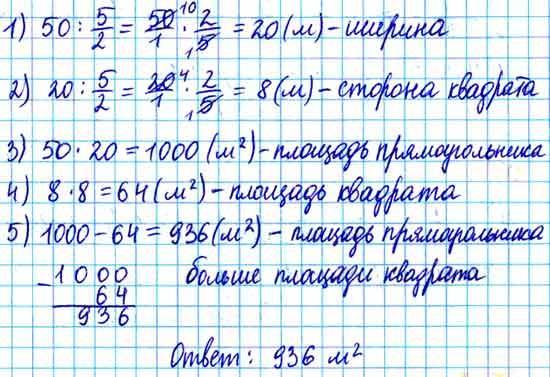 1) 50 : 5/2 = 50/1 · 2/5 = 20 (м) – ширина
2) 20 : 5/2 = 20/1 · 2/5 = 8 (м) – сторона квадрата
3) 50 · 20 = 1000 (м²) – площадь прямоугольника
4) 8 · 8 = 64 (м²) – площадь квадрата
5) 1000 – 64 = 936 (м²) – площадь прямоугольника
больше площади квадрата
– 1000
64
936
Ответ: 936 м²